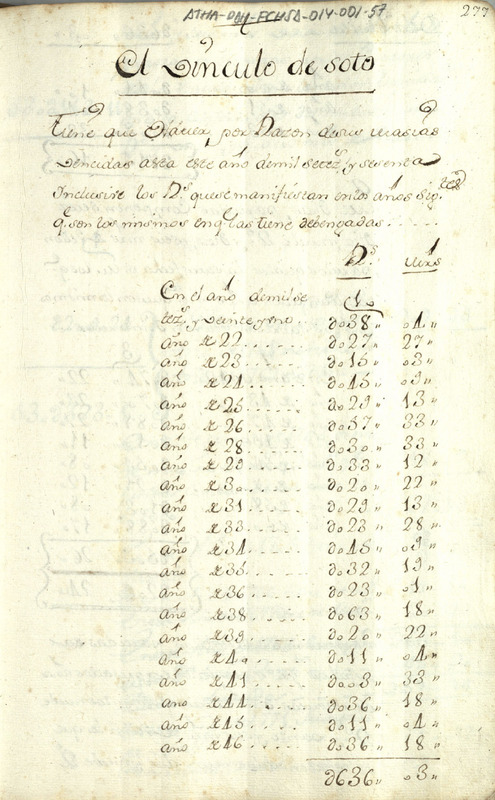 ATHA-DAH-ECHSA-014-001-57
277
El Vinculo de soto
tiene que Haver, por Razon de sus
Vencidas asta este año de mil setezs. y sesenta
Inclusive los Ds. que se manifiestan en los años Sigtes.
q. son los mismos en q. las tiene debengadas . . . . .
Ds. mrs
En el año de mil se
tezs. y Veinte y uno. do38 " o4 "
año de 22 . . . . . . do27 " 27 "
año de 23 . . . . . do15 " o3 "
año de 24 . . . . . do45 " o9 "
año de 25 . . . . . . do29 " 13 "
año de 26 . . . . . do57 " 33 "
año de 28 . . . . . do3o " 33 "
año de 29 . . . . . do33 " 12 "
año de 3o . . . . . do2o " 22 "
año de 31 . . . . . do29 " 13 "
año de 33 . . . . . do23 " 28 "
año de 34 . . . . . do45 " o9 "
año de 35 . . . . . do32 " 19 "
año de 36 . . . . . do23 " o1 "
año de 38 . . . . . do63 " 18 "
año de 39 . . . . . do2o " 22 "
año de 4o . . . . . do11 " o4 "
año de 41 . . . . . doo3 " 33 "
año de 44 . . . . . do36 " 18 "
año de 45 . . . . . do11 " o4 "
año de 46 . . . . . do36 " 18 "
d636 " o3 "